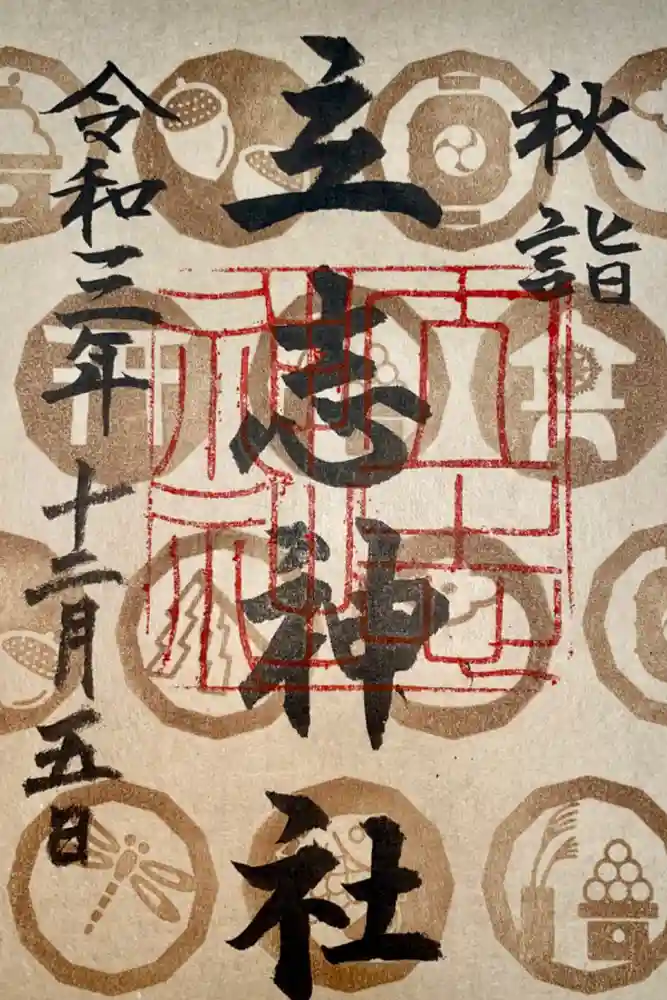 秋詣
立志神社
令和三年十二月五日